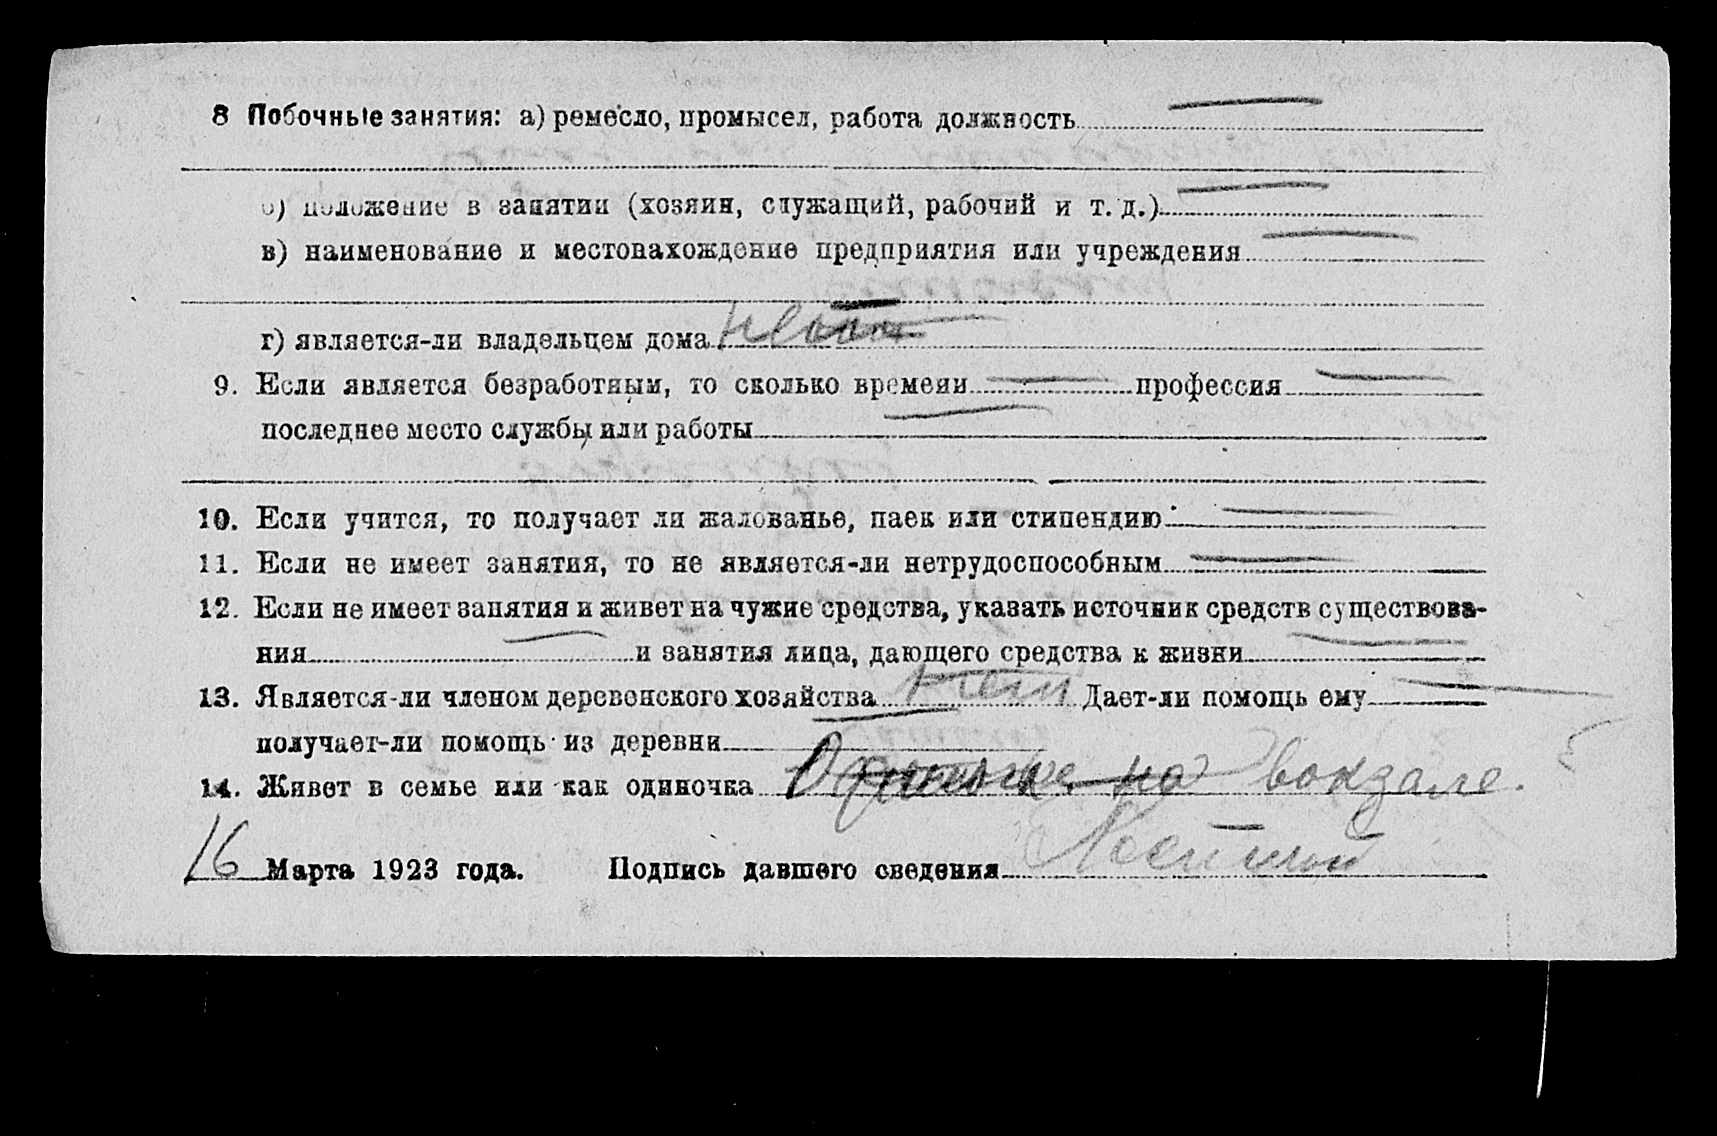 8 Побочные занятия: а) ремесло, промысел, работа должность
б) положение в занятии (хозяин, служащий, рабочий и т. д.)
в) наименование и местонахождение предприятия или учреждения
г) является-ли владельцем дома
9. Если является безработным, то сколько времени профессия
последнее место службы или работы
10. Если учится, то получает ли жалованье, паек или стипендию
11. Если не имеет занятия, то не является-ли нетрудоспособным
12. Если не имеет занятия и живет на чужие средства, указать источник средств существова-
ния и занятия лица, дающего средства к жизни
13. Является-ли членом деревенского хозяйства нет Дает-ли помощь ему
получает-ли помощь из деревни
14. Живет в семье или как одиночка на вокзале.
16 Марта 1923 года. Подпись давшего сведения